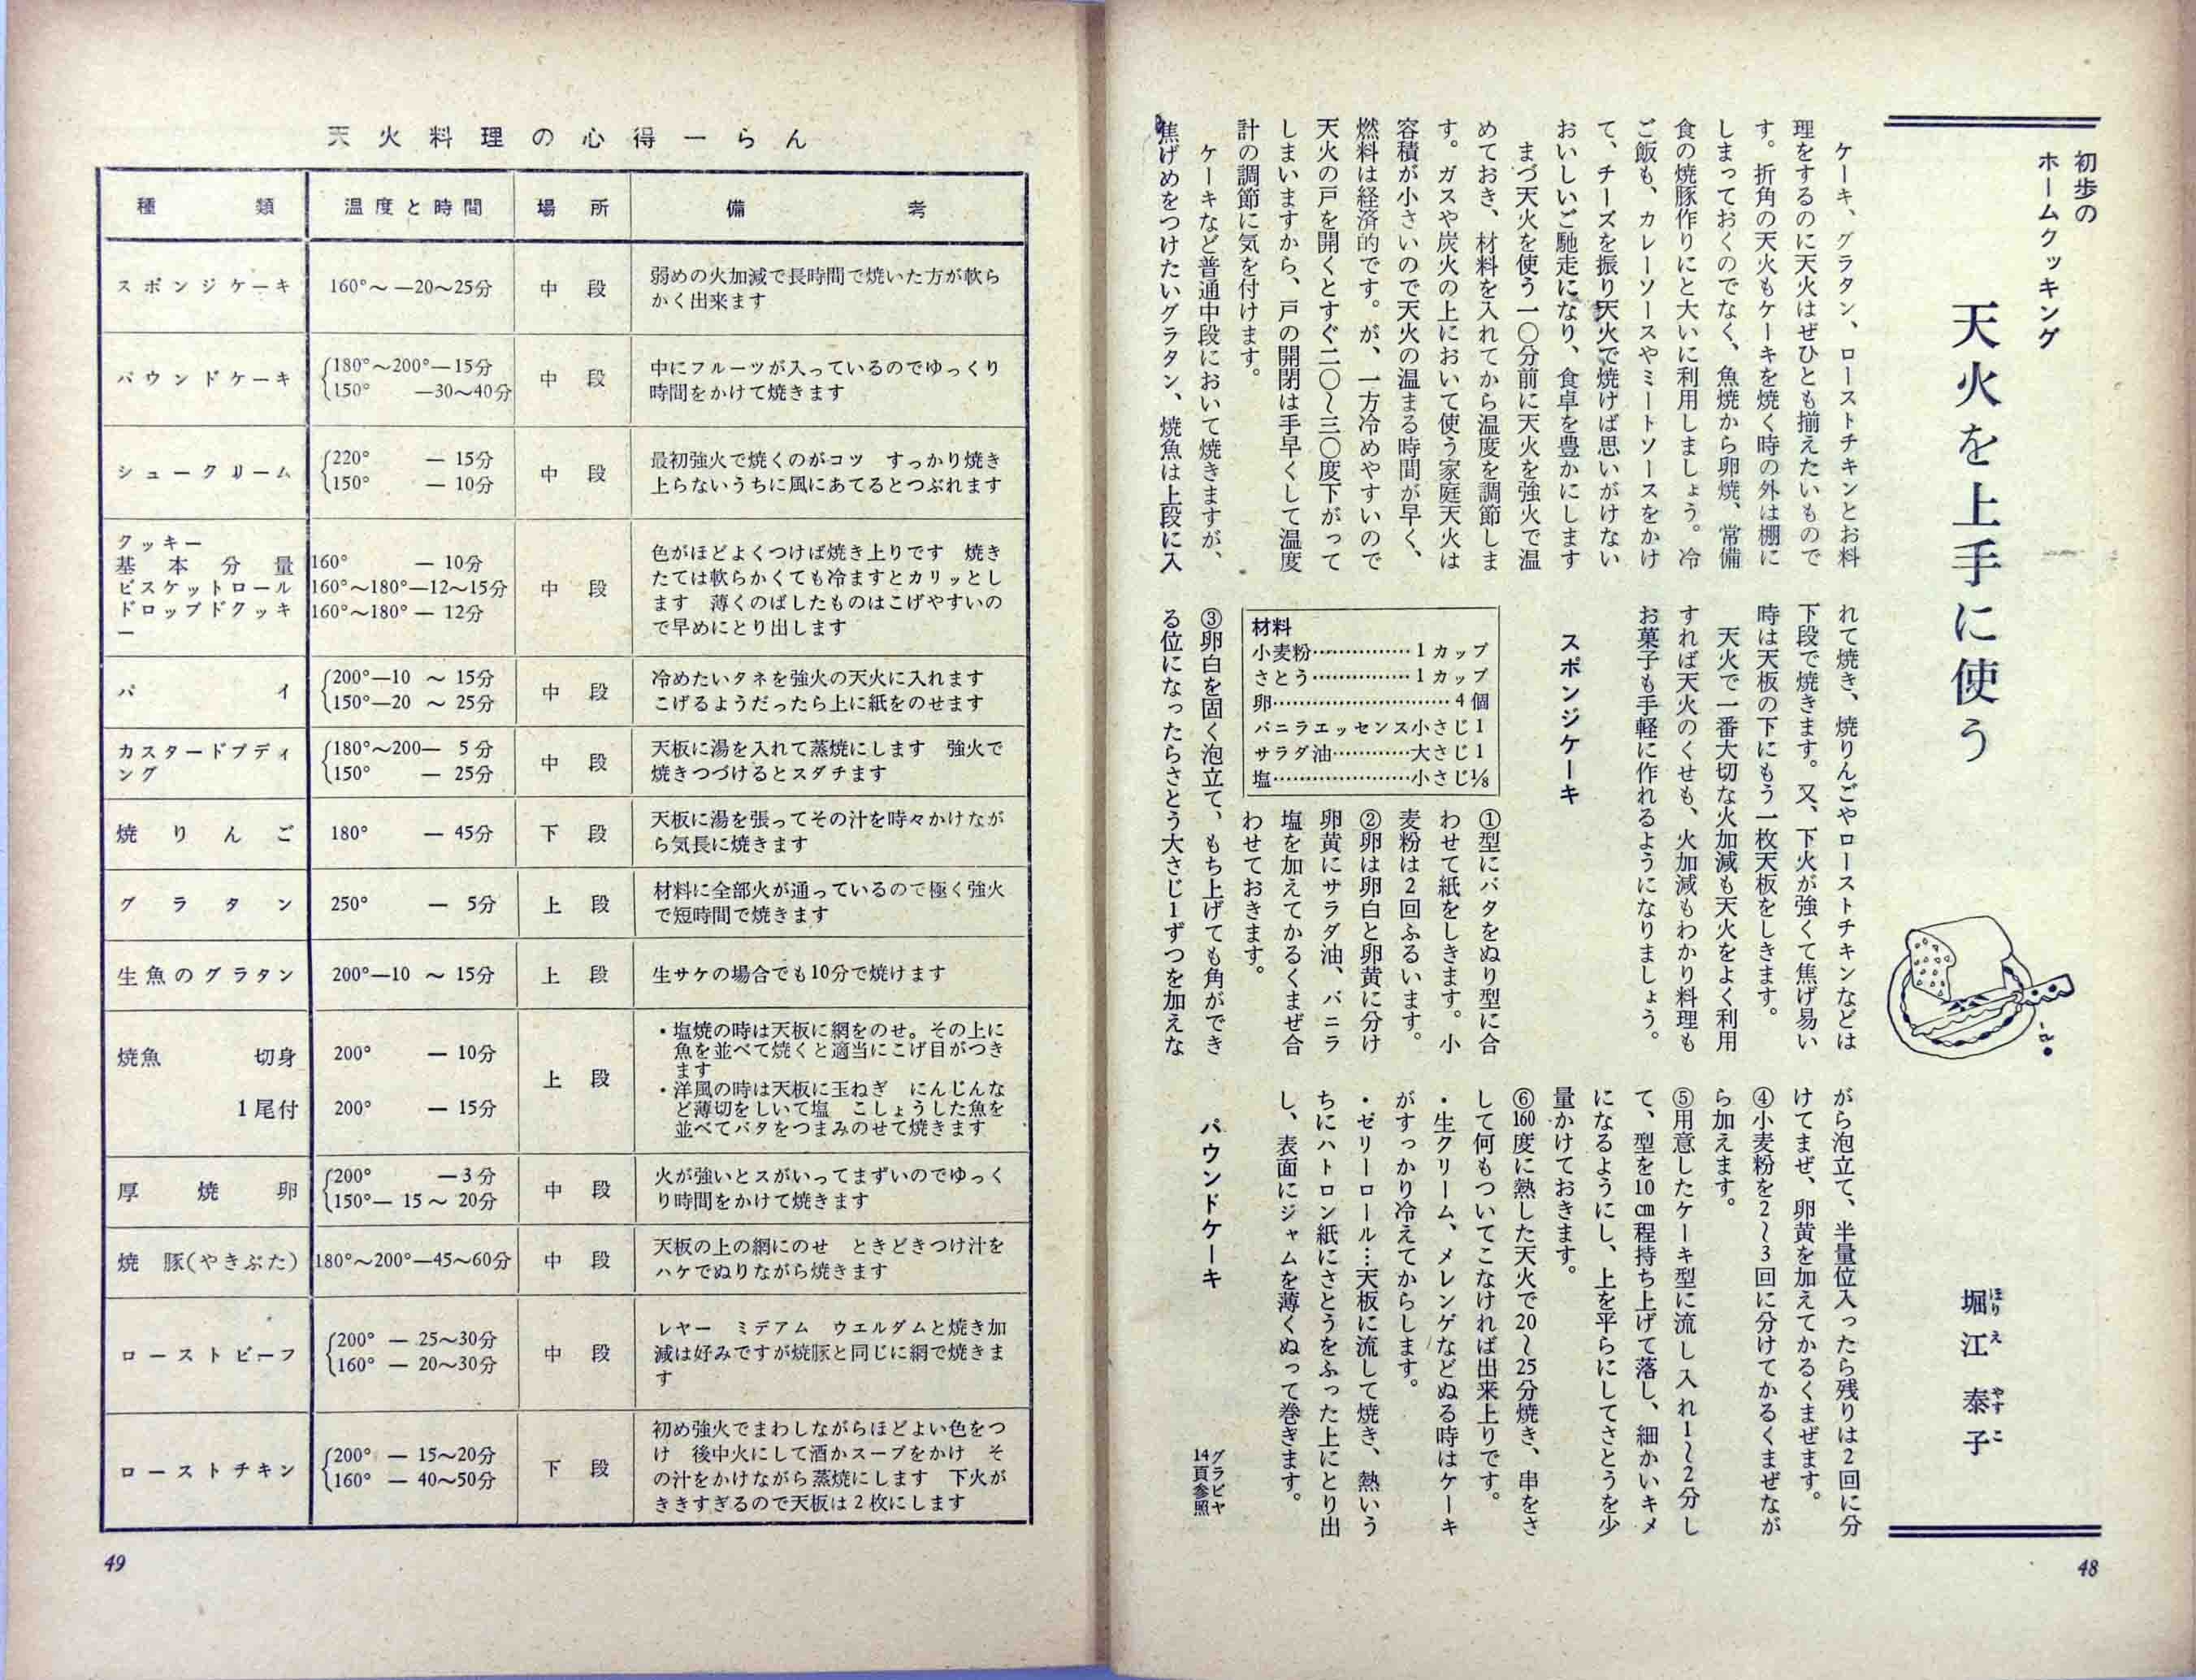 初歩の
ホームクッキング
天火を上手に使う
堀江泰子
ほりえやすこ
ケーキ、グラタン、ローストチキンとお料
理をするのに天火はぜひとも揃えたいもので
す。折角の天火もケーキを焼く時の外は棚に
しまっておくのでなく、魚焼から卵焼、常備
食の焼豚作りにと大いに利用しましょう。冷
ご飯も、カレーソースやミートソースをかけ
て、チーズを振り天火で焼けば思いがけない
おいしいご馳走になり、食卓を豊かにします
まづ天火を使う一〇分前に天火を強火で温
めておき、材料を入れてから温度を調節しま
す。ガスや炭火の上において使う家庭天火は
容積が小さいので天火の温まる時間が早く、
燃料は経済的です。が、一方冷めやすいので
天火の戸を開くとすぐ二〇〜三〇度下がって
しまいますから、戸の開閉は手早くして温度
計の調節に気を付けます。
ケーキなど普通中段において焼きますが、
焦げめをつけたいグラタン、焼魚は上段に入
れて焼き、焼りんごやローストチキンなどは
下段で焼きます。又、下火が強くて焦げ易い
時は天板の下にもう一枚天板をしきます。
天火で一番大切な火加減も天火をよく利用
すれば天火のくせも、火加減もわかり料理も
お菓子も手軽に作れるようになりましょう。
スポンジケーキ
材料
小麦粉……………1カップ
さとう……………1カップ
卵………………………4個
バニラエッセンス小さじ1
サラダ油…………大さじ1
塩…………………小さじ⅛
①型にバタをぬり型に合
わせて紙をしきます。小
麦粉は2回ふるいます。
②卵は卵白と卵黄に分け
卵黄にサラダ油、バニラ
塩を加えてかるくまぜ合
わせておきます。
③卵白を固く泡立て、もち上げても角ができ
る位になったらさとう大さじ1ずつを加えな
がら泡立て、半量位入ったら残りは2回に分
けてまぜ、卵黄を加えてかるくまぜます。
④小麦粉を2〜3回に分けてかるくまぜなが
ら加えます。
⑤用意したケーキ型に流し入れ1〜2分し
て、型を10cm程持ち上げて落し、細かいキメ
になるようにし、上を平らにしてさとうを少
量かけておきます。
⑥160度に熱した天火で20〜25分焼き、串をさ
して何もついてこなければ出来上りです。
・生クリーム、メレンゲなどぬる時はケーキ
がすっかり冷えてからします。
・ゼリーロール…天板に流して焼き、熱いう
ちにハトロン紙にさとうをふった上にとり出
し、表面にジャムを薄くぬって巻きます。
パウンドケーキ
グラビヤ
14頁参照
48
天火料理の心得一らん
種類 温度と時間 場所 備考
スポンジケーキ 160°〜—20〜25分 中段 弱めの火加減で長時間で焼いた方が軟ら
かく出来ます
パウンドケーキ 180°〜200°—15分 中段 中にフルーツが入っているのでゆっくり
150° —30〜40分 時間をかけて焼きます
シュークリーム 220° — 15分 中段 最初強火で焼くのがコツ すっかり焼き
150° — 10分 上らないうちに風にあてるとつぶれます
クッキー 色がほどよくつけば焼き上りです 焼き
基本分量 160° — 10分 たては軟らかくても冷ますとカリッとし
ビスケットロール 160°〜180°—12〜15分 中段 ます 薄くのばしたものはこげやすいの
ドロップドクッキー 160°〜180° — 12分 で早めにとり出します
パイ 200°—10 〜 15分 中段 冷めたいタネを強火の天火に入れます
150°—20 〜 25分 こげるようだったら上に紙をのせます
カスタードプディ 180°〜200— 5分 中段 天板に湯を入れて蒸焼にします 強火で
ング 150° — 25分 焼きつづけるとスダチます
焼りんご 180° — 45分 下段 天板に湯を張ってその汁を時々かけなが
ら気長に焼きます
グラタン 250° — 5分 上段 材料に全部火が通っているので極く強火
で短時間で焼きます
生魚のグラタン 200°—10 〜 15分 上段 生サケの場合でも10分で焼けます
焼魚 切身 200° — 10分 上段 ・塩焼の時は天板に網をのせ。その上に
魚を並べて焼くと適当にこげ目がつき
ます
1尾付 200° — 15分 ・洋風の時は天板に玉ねぎ にんじんな
ど薄切をしいて塩 こしょうした魚を
並べてバタをつまみのせて焼きます
厚焼卵 200° —3分 中段 火が強いとスがいってまずいのでゆっく
150°— 15 〜 20分 り時間をかけて焼きます
焼豚(やきぶた) 180°〜200°—45〜60分 中段 天板の上の網にのせ ときどきつけ汁を
ハケでぬりながら焼きます
ローストビーフ 200° — 25〜30分 中段 レヤー ミデアム ウエルダムと焼き加
160° — 20〜30分 減は好みですが焼豚と同じに網で焼きま
す
ローストチキン 200° — 15〜20分 下段 初め強火でまわしながらほどよい色をつ
160° — 40〜50分 け 後中火にして酒かスープをかけ そ
の汁をかけながら蒸焼にします 下火が
ききすぎるので天板は2枚にします
49